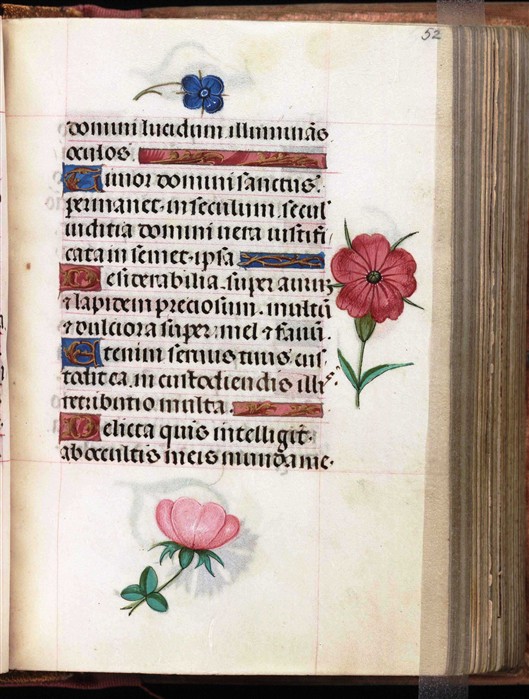 52
domini lucidum illuminãs
oculos.
Timor domini sanctus.
permanet in seculum. secul'
iuditia domini uera iustifi
cata in semet ipsa.
Desiderabilia. super aurũ
⁊ lapidem preciosum. multũ
⁊ dulciora super mel ⁊ fauũ.
Etenim seruus tuus cus
todit ea. in custodiendis illi'
retributio multa.
Delicta quis intelligit.
ab occultis meis munda me.